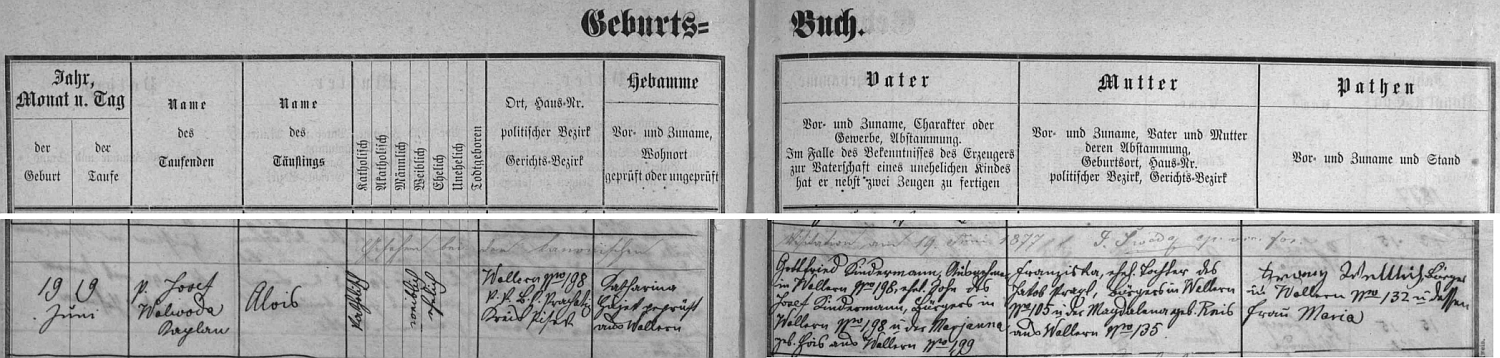 Geburts=
Buch.
Jahr,
Monat u. Tag
der
Geburt
der
Taufe
Name
des
Taufenden
Name
des
Täuflings
Katholisch
Akatholisch
Männlich
Weiblich
Ehelich
Unehelich
Todtgeboren
Ort, Haus-Nr.
politischer Bezirk
Gerichts-Bezirk
Hebamme
Vor- und Zuname,
Wohnort
geprüft oder ungeprüft
Vater
Vor- und Zuname, Charakter oder
Gewerbe, Abstammung.
Im Falle des Bekenntnisses des Erzeugers
zur Vaterschaft eines unehelichen Kindes
hat er nebst zwei Zeugen zu fertigen
Mutter
Vor- und Zuname, Vater und Mutter
deren Abstammung,
Geburtsort, Haus-Nr.
politischer Bezirk, Gerichts-Bezirk
Pathen
Vor- und Zuname und Stand
19 19
Juni
P. Josef
Kaplan
Alois
katholisch
ehelich
Wallern Nro 198
Kreis Pisek
Katharina
geprüft
aus Wallern
am 19. Juni 1877
Gottfried Sindermann,
in Wallern Nro 198, ehel. Sohn des
Josef Sindermann, Bürgers in
Wallern Nro 198 u. der Marianna
aus Wallern Nro 199
Franziska, ehel. Tochter des
Jakob Bürgers in Wallern
Nro 105 u. der Magdalena geb.
aus Wallern Nro 135
Bürger
in Wallern Nro 132 u. dessen
Frau Maria